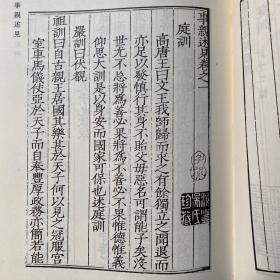 事親述見卷之一
庭訓
高唐王曰文王我師歸而求之有餘獨立之開退而
亦足以發慎行其身不貽父母惡名可謂能子矣沒
世允不忘將為善必果將為不善必不果惟德惟義
仰思大訓是以身安而國家可保也述庭訓
嚴訓曰伏覩
祖訓曰自古親王居國其樂甚於天子何以見之冠服宮
室車馬儀仗亞於天子而自奉豐厚政務亦簡若能
事親述見